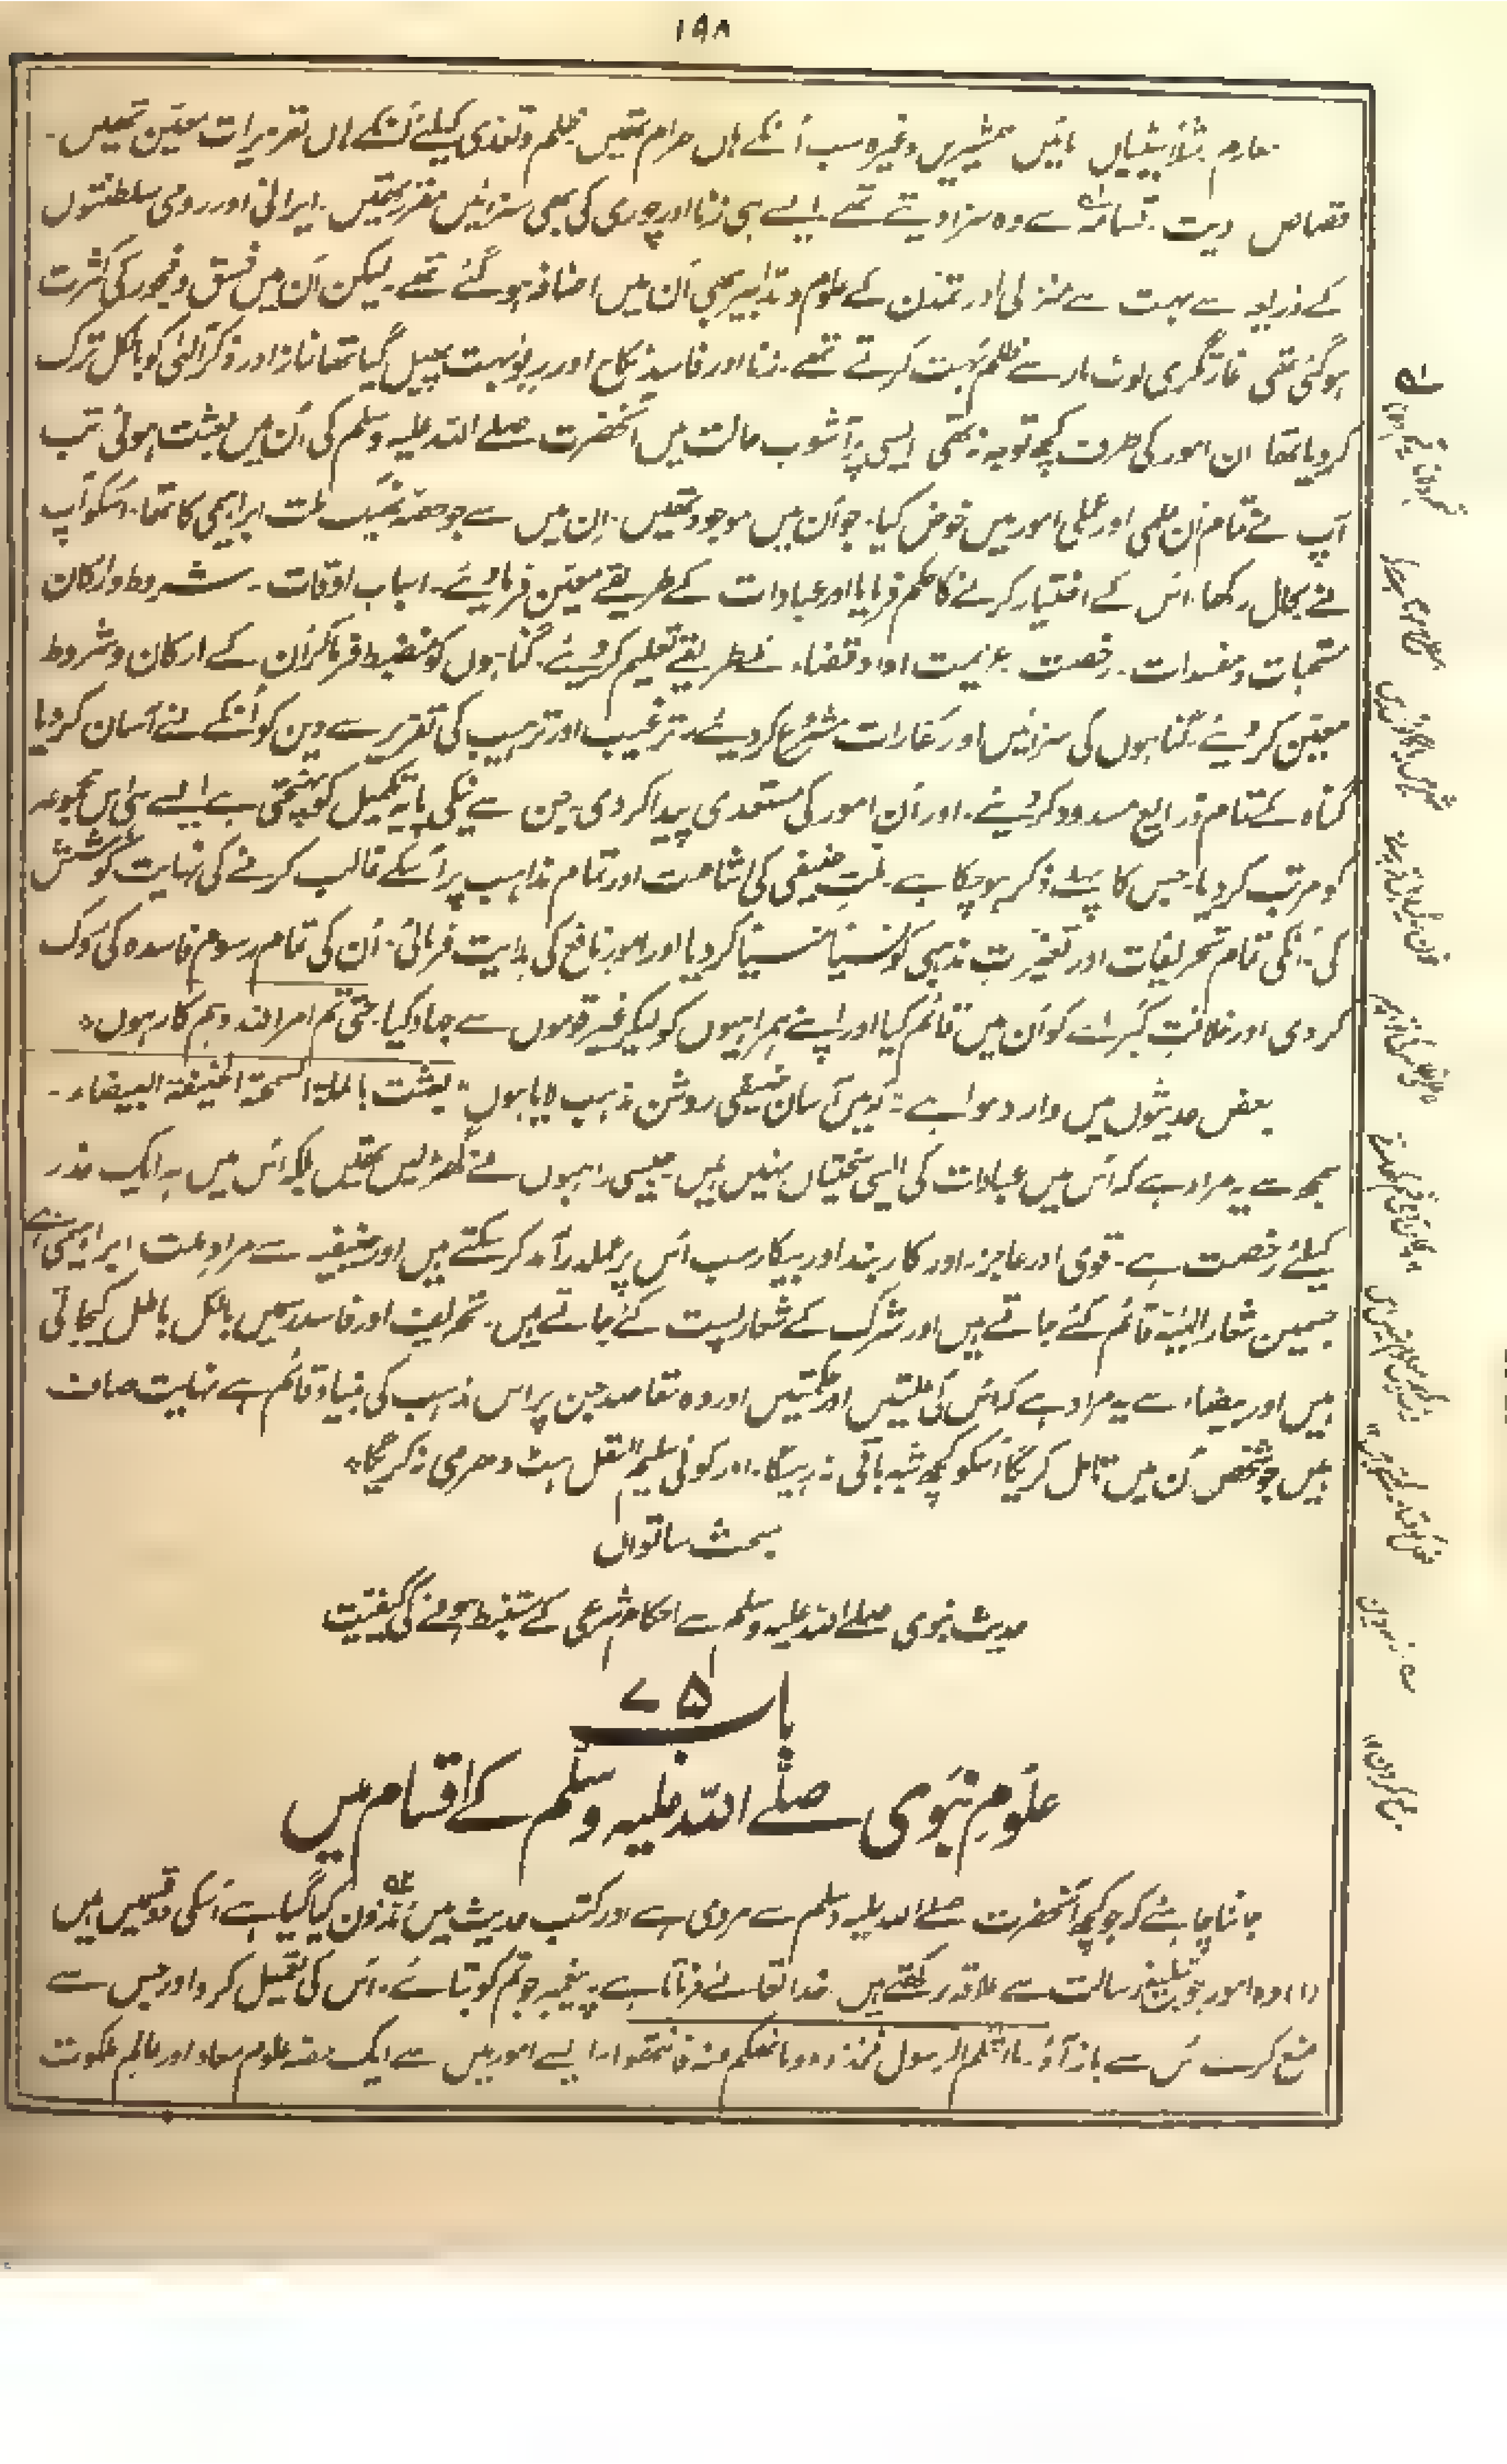 ۱۹۸
محارم مثلاً بیٹیاں مائیں ہمشیریں وغیرہ سب اُنکے ہاں حرام تھیں ظلم و تعدی کیلئے اُنکے ہاں تعزیرات معیّن تھیں۔
قصاص دیت۔ قسامہ سے وہ سزا دیتے تھے۔ ایسے ہی زنا اور چوری کی بھی سزائیں مقرر تھیں۔ ایرانی اور رومی سلطنتوں
کے ذریعہ سے بہت سے منزلی اور تمدن کے علوم و تدابیر بھی اُن میں اضافہ ہو گئے تھے۔ لیکن اُن میں فسق و فجور کی کثرت
ہو گئی تھی غارتگری لوٹ مار سے ظلم بہت کرتے تھے۔ زنا اور فاسد نکاح اور ربو بہت پھیل گیا تھا نماز اور ذکر آلہٰی کو بالکل ترک
کر دیا تھا ان امور کی طرف کچھ توجہ نہ تھی ایسی پُر آشوب حالت میں آنحضرت صلے اللہ علیہ وسلم کی اُن میں بعثت ہوئی تب
آپ نے تمام اُن علمی اور عملی امور میں خوض کیا۔ جو اُن میں موجود تھیں۔ اِن میں سے جو حصّہ ٹھیک ملت ابراہیمی کا تھا۔ اسکو آپ
نے بحال رکھا۔ اُس کے اختیار کرنے کا حکم فرمایا اور عبادات کے طریقے معیّن فرمائے۔ اسباب اوقات۔ شروط و ارکان
مستحبات و مفسدات۔ رخصت عزیمت ادا و قضاء کے طریقے تعلیم کر دیئے۔ گناہوں کو منضبط فرما کر اُن کے ارکان و شروط
معیّن کر دیئے گناہوں کی سزائیں اور کفارات مشروع کر دیئے۔ ترغیب اور ترہیب کی تقریر سے دین کو اُنکے لئے آسان کر دیا
گناہ کے تمام ذرایع مسدود کر دیئے۔ اور اُن امور کی مستعدی پیدا کر دی جن سے نیکی پایہ تکمیل کو پہنچتی ہے ایسے ہی اس مجموعہ
کو مرتب کر دیا۔ جس کا پہلے ذکر ہو چکا ہے۔ ملّتِ حنیفی کی اشاعت اور تمام مذاہب پر اُسکے غالب کرنے کی نہایت کوشش
کی۔ انکی تمام تحریفات اور تغیرات مذہبی کو نسیاً منسیاً کر دیا اور امور نافع کی ہدایت فرمائی۔ اُن کی تمام رسوم فاسدہ کی روک
کر دی اور خلافتِ کبریٰ کو اُن میں قائم کیا اور اپنے ہمراہیوں کو لیکر غیر قوموں سے جہاد کیا۔ حتی تم امر اللہ وہم کارہون۔
بعض حدیثوں میں وارد ہوا ہے۔ کہ میں آسان حنیفی روشن مذہب لایا ہوں۔ بعثت بالملۃ السمحۃ الحنیفۃ البیضاء۔
سمحہ سے یہ مراد ہے کہ اُس میں عبادات کی ایسی سختیاں نہیں ہیں جیسی راہبوں نے گھڑ لیں تھیں بلکہ اُس میں ہر ایک عذر
کیلئے رخصت ہے۔ قوی اور عاجز۔ اور کاربند اور بیکار سب اُس پر عملدرآمد کر سکتے ہیں اور حنیفیہ سے مراد ملت ابراہیمی ہے
جسمیں شعار الٰہیّہ قائم کئے جاتے ہیں اور شرک کے شعار پست کئے جاتے ہیں۔ تحریف اور فاسد رسمیں بالکل باطل کیجاتی
ہیں اور بیضاء سے یہ مراد ہے کہ اُس کی علّتیں اور حکمتیں اور وہ مقاصد جن پر اس مذہب کی بنیاد قائم ہے نہایت صاف
ہیں جو شخص اُن میں تامل کریگا اُسکو کچھ شبہ باقی نہ رہیگا۔ اور کوئی سلیم العقل ہٹ دھرمی نہ کریگا۔
مبحث ساتواں
حدیث نبوی صلے اللہ علیہ وسلم سے احکام شرعی کے مستنبط ہونے کی کیفیت
باب ۷۵
علوم نبوی صلے اللہ علیہ وسلم کے اقسام میں
جاننا چاہئے کہ جو کچھ آنحضرت صلے اللہ علیہ وسلم سے مروی ہے اور کتب حدیث میں مدوّن کیا گیا ہے اُسکی دو قسمیں ہیں
(۱) وہ امور جو تبلیغ رسالت سے علاقہ رکھتے ہیں خدا تعالےٰ فرماتا ہے۔ پیغمبر جو تم کو بتائے۔ اُس کی تعمیل کرو اور جس سے
منع کرے اُس سے باز آؤ۔ ما اٰتٰکم الرسول فخذوہ وما نھٰکم عنہ فانتھوا۔ ایسے امور میں سے ایک حصہ علوم معاد اور عالم ملکوت